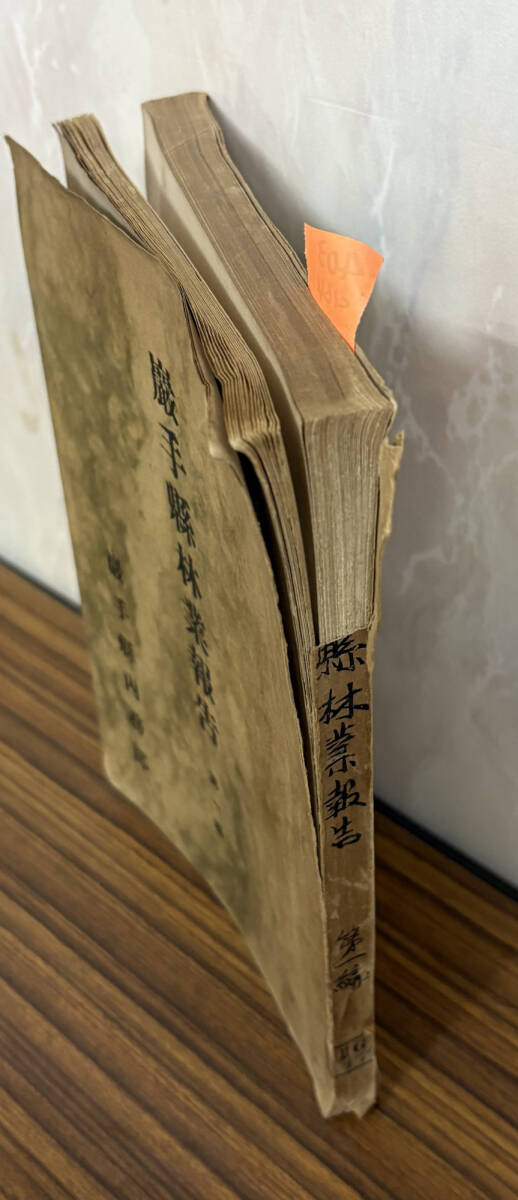 巖手縣林業報告
第一編
巖手縣內務部
縣林業報告
第一編
16